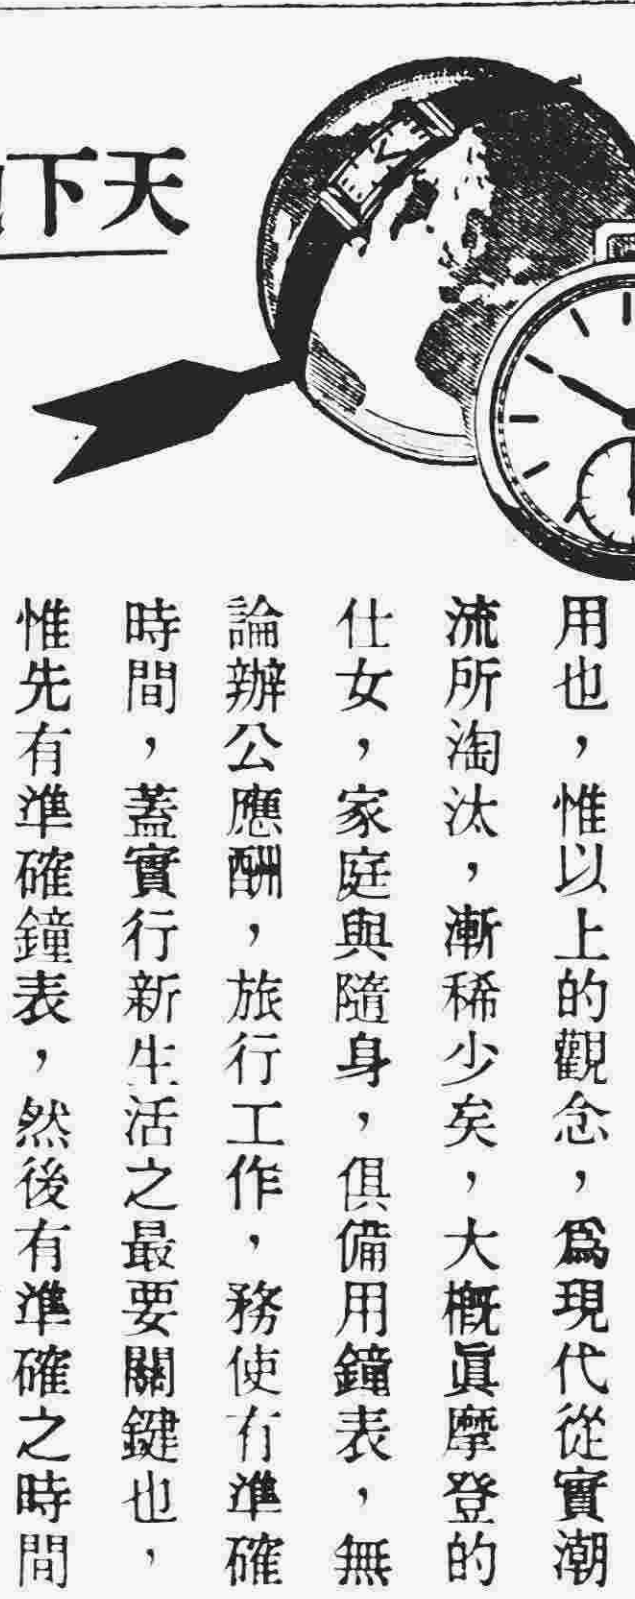 天下
用也，惟以上的觀念，爲現代從實潮
流所淘汰，漸稀少矣，大概眞摩登的
仕女，家庭與隨身，俱備用鐘表，無
論辦公應酬，旅行工作，務使有準確
時間，蓋實行新生活之最要關鍵也，
惟先有準確鐘表，然後有準確之時間